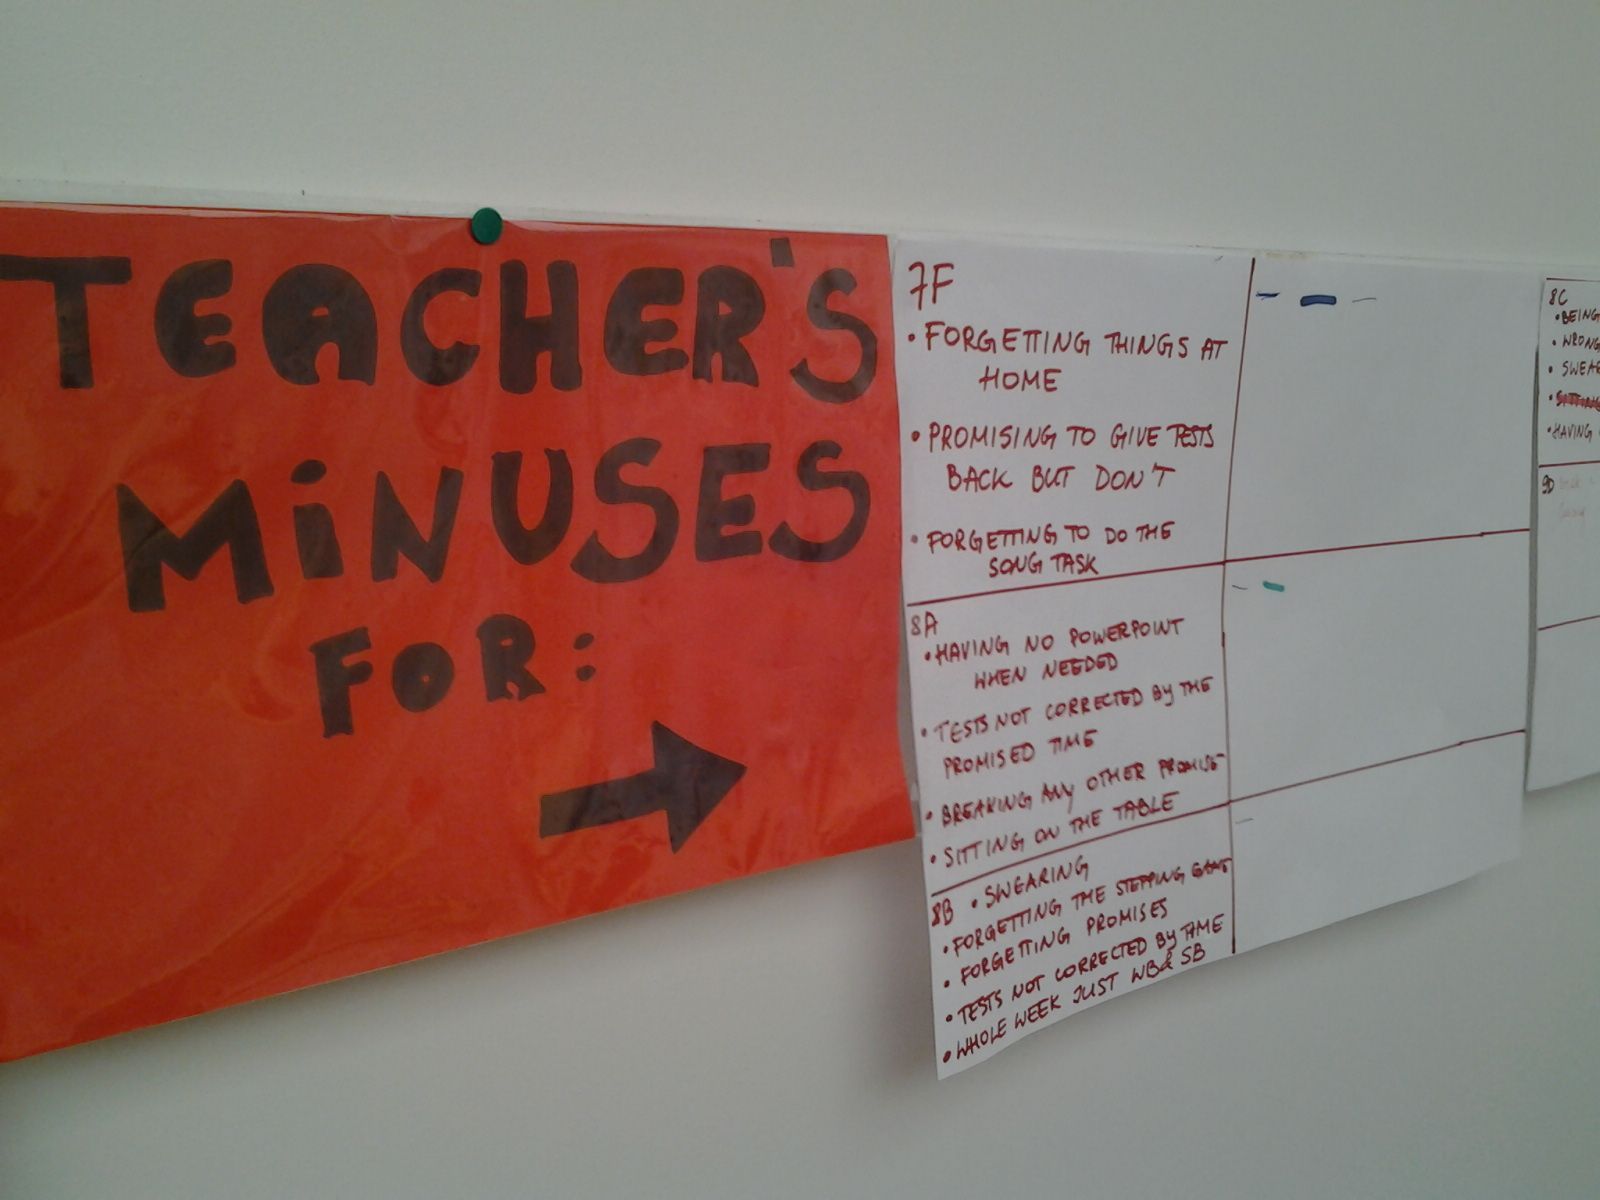 TEACHER'S
MINUSES
FOR:
7F
• FORGETTING THINGS AT
HOME
• PROMISING TO GIVE TESTS
BACK BUT DON'T
• FORGETTING TO DO THE
SONG TASK
8A
• HAVING NO POWERPOINT
WHEN NEEDED
• TESTS NOT CORRECTED BY THE
PROMISED TIME
• BREAKING ANY OTHER PROMISE
• SITTING ON THE TABLE
8B • SWEARING
• FORGETTING THE STEPPING GAME
• FORGETTING PROMISES
• TESTS NOT CORRECTED BY TIME
• WHOLE WEEK JUST WB & SB
8C
• BEING
• WRONG
• SWEA
• HAVING
9D